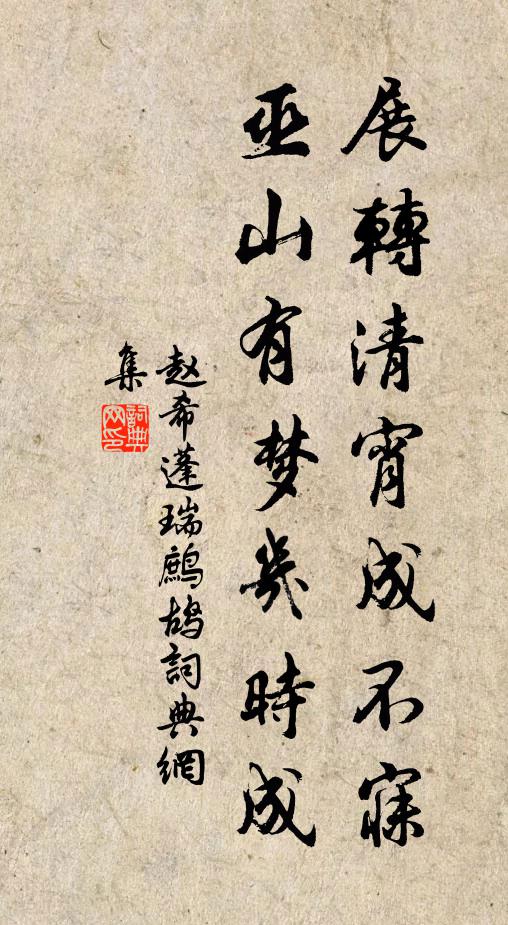 展轉清宵成不寐
巫山有梦幾時成
赵希蓬瑞鹧鸪詞典網
集
詞典網印